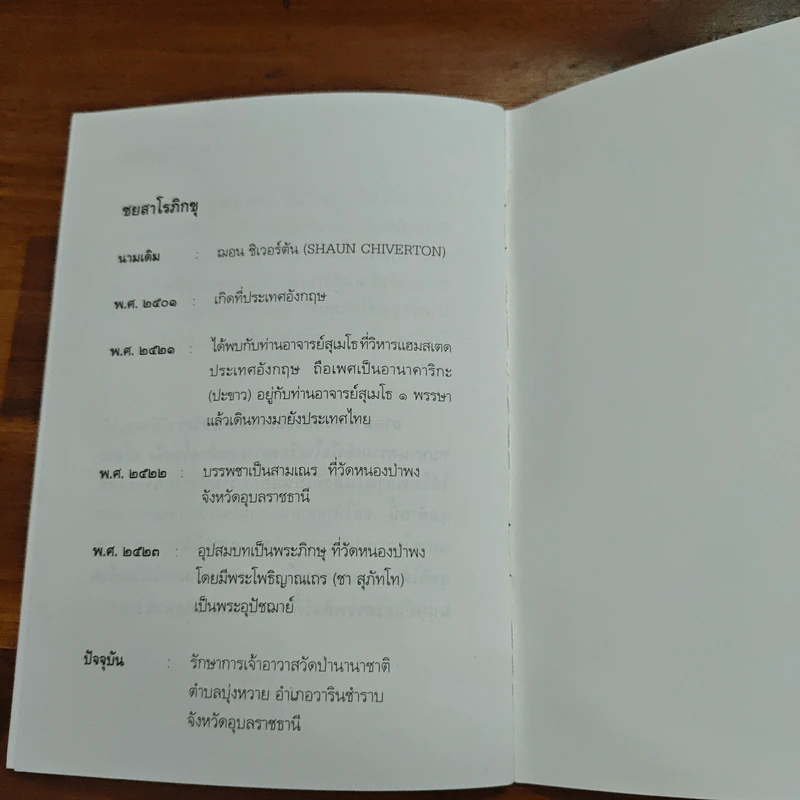 ชยสาโรภิกขุ
นามเดิม : ฌอน ชิเวอร์ตัน (SHAUN CHIVERTON)
พ.ศ. ๒๕๐๑ : เกิดที่ประเทศอังกฤษ
พ.ศ. ๒๕๒๑ : ได้พบกับท่านอาจารย์สุเมโธที่วิหารแฮมสเตด
ประเทศอังกฤษ ถือเพศเป็นอานาคาริกะ
(ปะขาว) อยู่กับท่านอาจารย์สุเมโธ ๑ พรรษา
แล้วเดินทางมายังประเทศไทย
พ.ศ. ๒๕๒๒ : บรรพชาเป็นสามเณร ที่วัดหนองป่าพง
จังหวัดอุบลราชธานี
พ.ศ. ๒๕๒๓ : อุปสมบทเป็นพระภิกษุ ที่วัดหนองป่าพง
โดยมีพระโพธิญาณเถร (ชา สุภัทโท)
เป็นพระอุปัชฌาย์
ปัจจุบัน : รักษาการเจ้าอาวาสวัดป่านานาชาติ
ตำบลบุ่งหวาย อำเภอวารินชำราบ
จังหวัดอุบลราชธานี